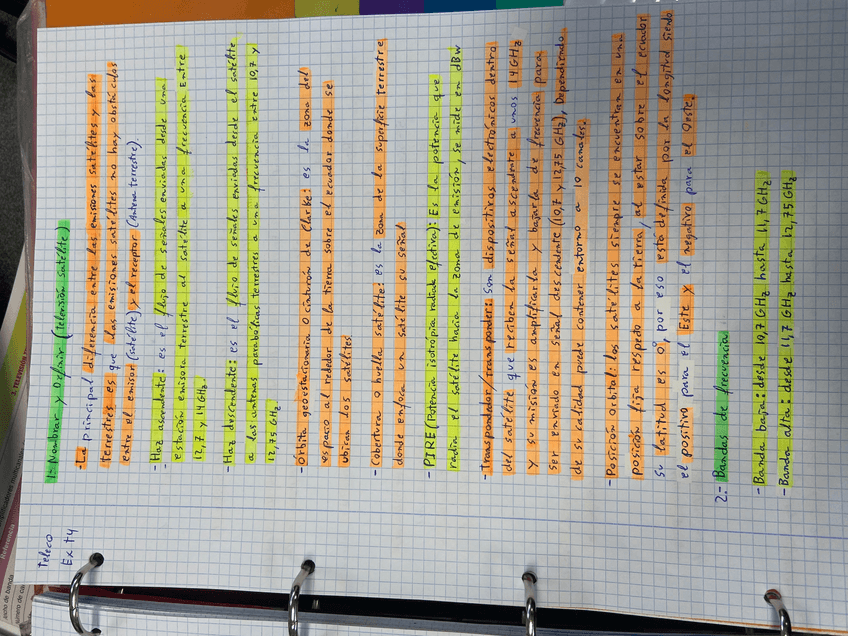 Teleco
Ex t4
1- Nombrar y Definir (Televisión Satélite)
- La principal diferencia entre las emisiones satelites y las
terrestres es que las emisiones satélites no hay obstáculos
entre el emisor (satélite) y el receptor (Antena terrestre).
- Haz ascendente: es el flujo de señales enviadas desde una
estación emisora terrestre al satélite a una frecuencia Entre
12,7 y 14 GHz
- Haz descendente: es el flujo de señales enviadas desde el satélite
a las antenas parabólicas terrestres a una frecuencia entre 10,7 y
12,75 GHz
- Órbita geoestacionaria o cinturón de Clarke: es la zona del
espacio al rededor de la tierra sobre el ecuador donde se
ubican los satélites
- Cobertura o huella satélite: es la zona de la superficie terrestre
donde enfoca un satélite su señal
- PIRE (Potencia isotrópica radiada efectiva): Es la potencia que
radia el satélite hacia la zona de emisión, se mide en dBW
- Transpondedor/transponder: son dispositivos electrónicos dentro
del satélite que reciben la señal ascendente a unos 14 GHz
y su misión es amplificarla y bajarla de frecuencia para
ser enviado en señal descendente (10,7 y 12,75 GHz), Dependiendo
de su calidad puede contener entorno a 10 canales.
- Posicion orbital: los satélites siempre se encuentran en una
posición fija respeto a la tierra, al estar sobre el ecuador
su latitud es 0°, por eso esta definida por la longitud siendo
el positivo para el Este y el negativo para el Oeste.
2.- Bandas de frecuencia
- Banda baja: desde 10,7 GHz hasta 11,7 GHz
- Banda alta: desde 11,7 GHz hasta 12,75 GHz